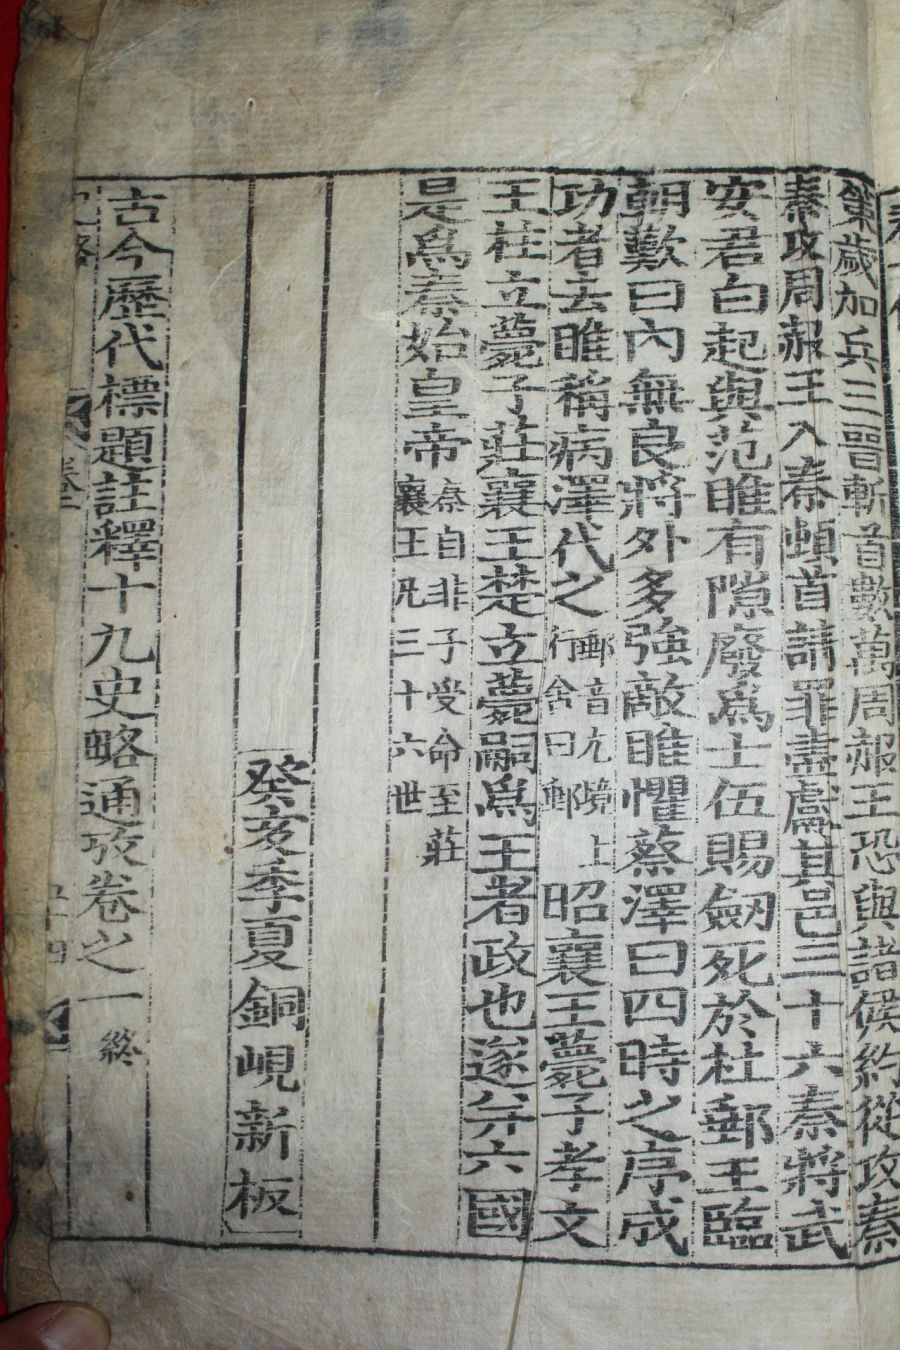 策歲加兵三晉斬首數萬周赧王恐與諸侯約從攻秦
秦攻周赧王入秦頓首請罪盡獻其邑三十六秦將武
安君白起與范睢有隙廢爲士伍賜劒死於杜郵王臨
朝歎曰內無良將外多強敵睢懼蔡澤曰四時之序成
功者去睢稱病澤代之郵音尤境上行舍曰郵昭襄王薨子孝文
王柱立薨子莊襄王楚立薨嗣爲王者政也遂并六國
是爲秦始皇帝秦自非子受命至莊襄王凡三十六世
癸亥季夏銅峴新板
古今歷代標題註釋十九史略通攷卷之一 終